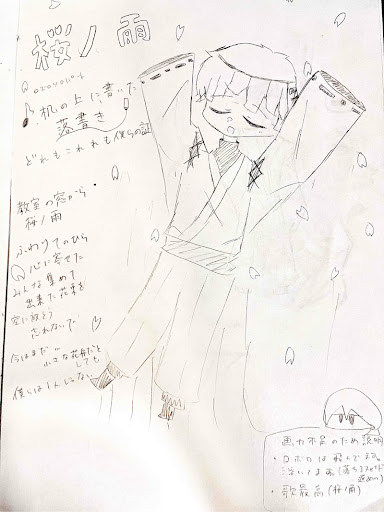 桜ノ雨
机の上に書いた
落書き
どれもこれも僕らの証
教室の窓から
桜ノ雨
ふわりてのひら
心に寄せた
みんな集めて
出来た花束を
空に放とう
忘れないで
今はまだ…
小さな花弁だと
しても
僕らは1人じゃない
画力不足のため説明
・ロボカは飛んでます。
浮いてます
・歌最高(桜ノ雨)